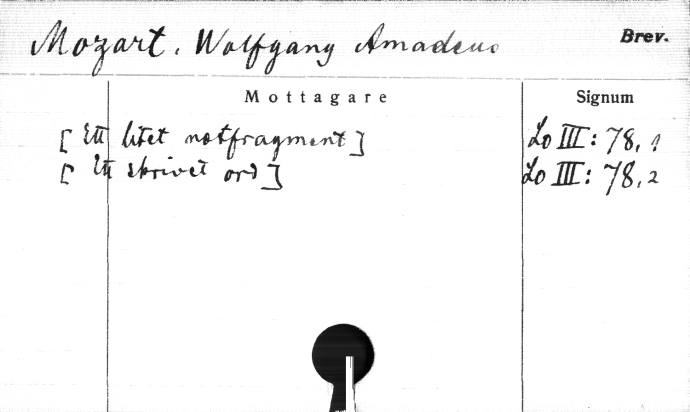 Mozart, Wolfgang Amadeus Brev.
Mottagare Signum
[Ett litet notfragment] Lo III: 78, 1
[Ett skrivet ord] Lo III: 78, 2